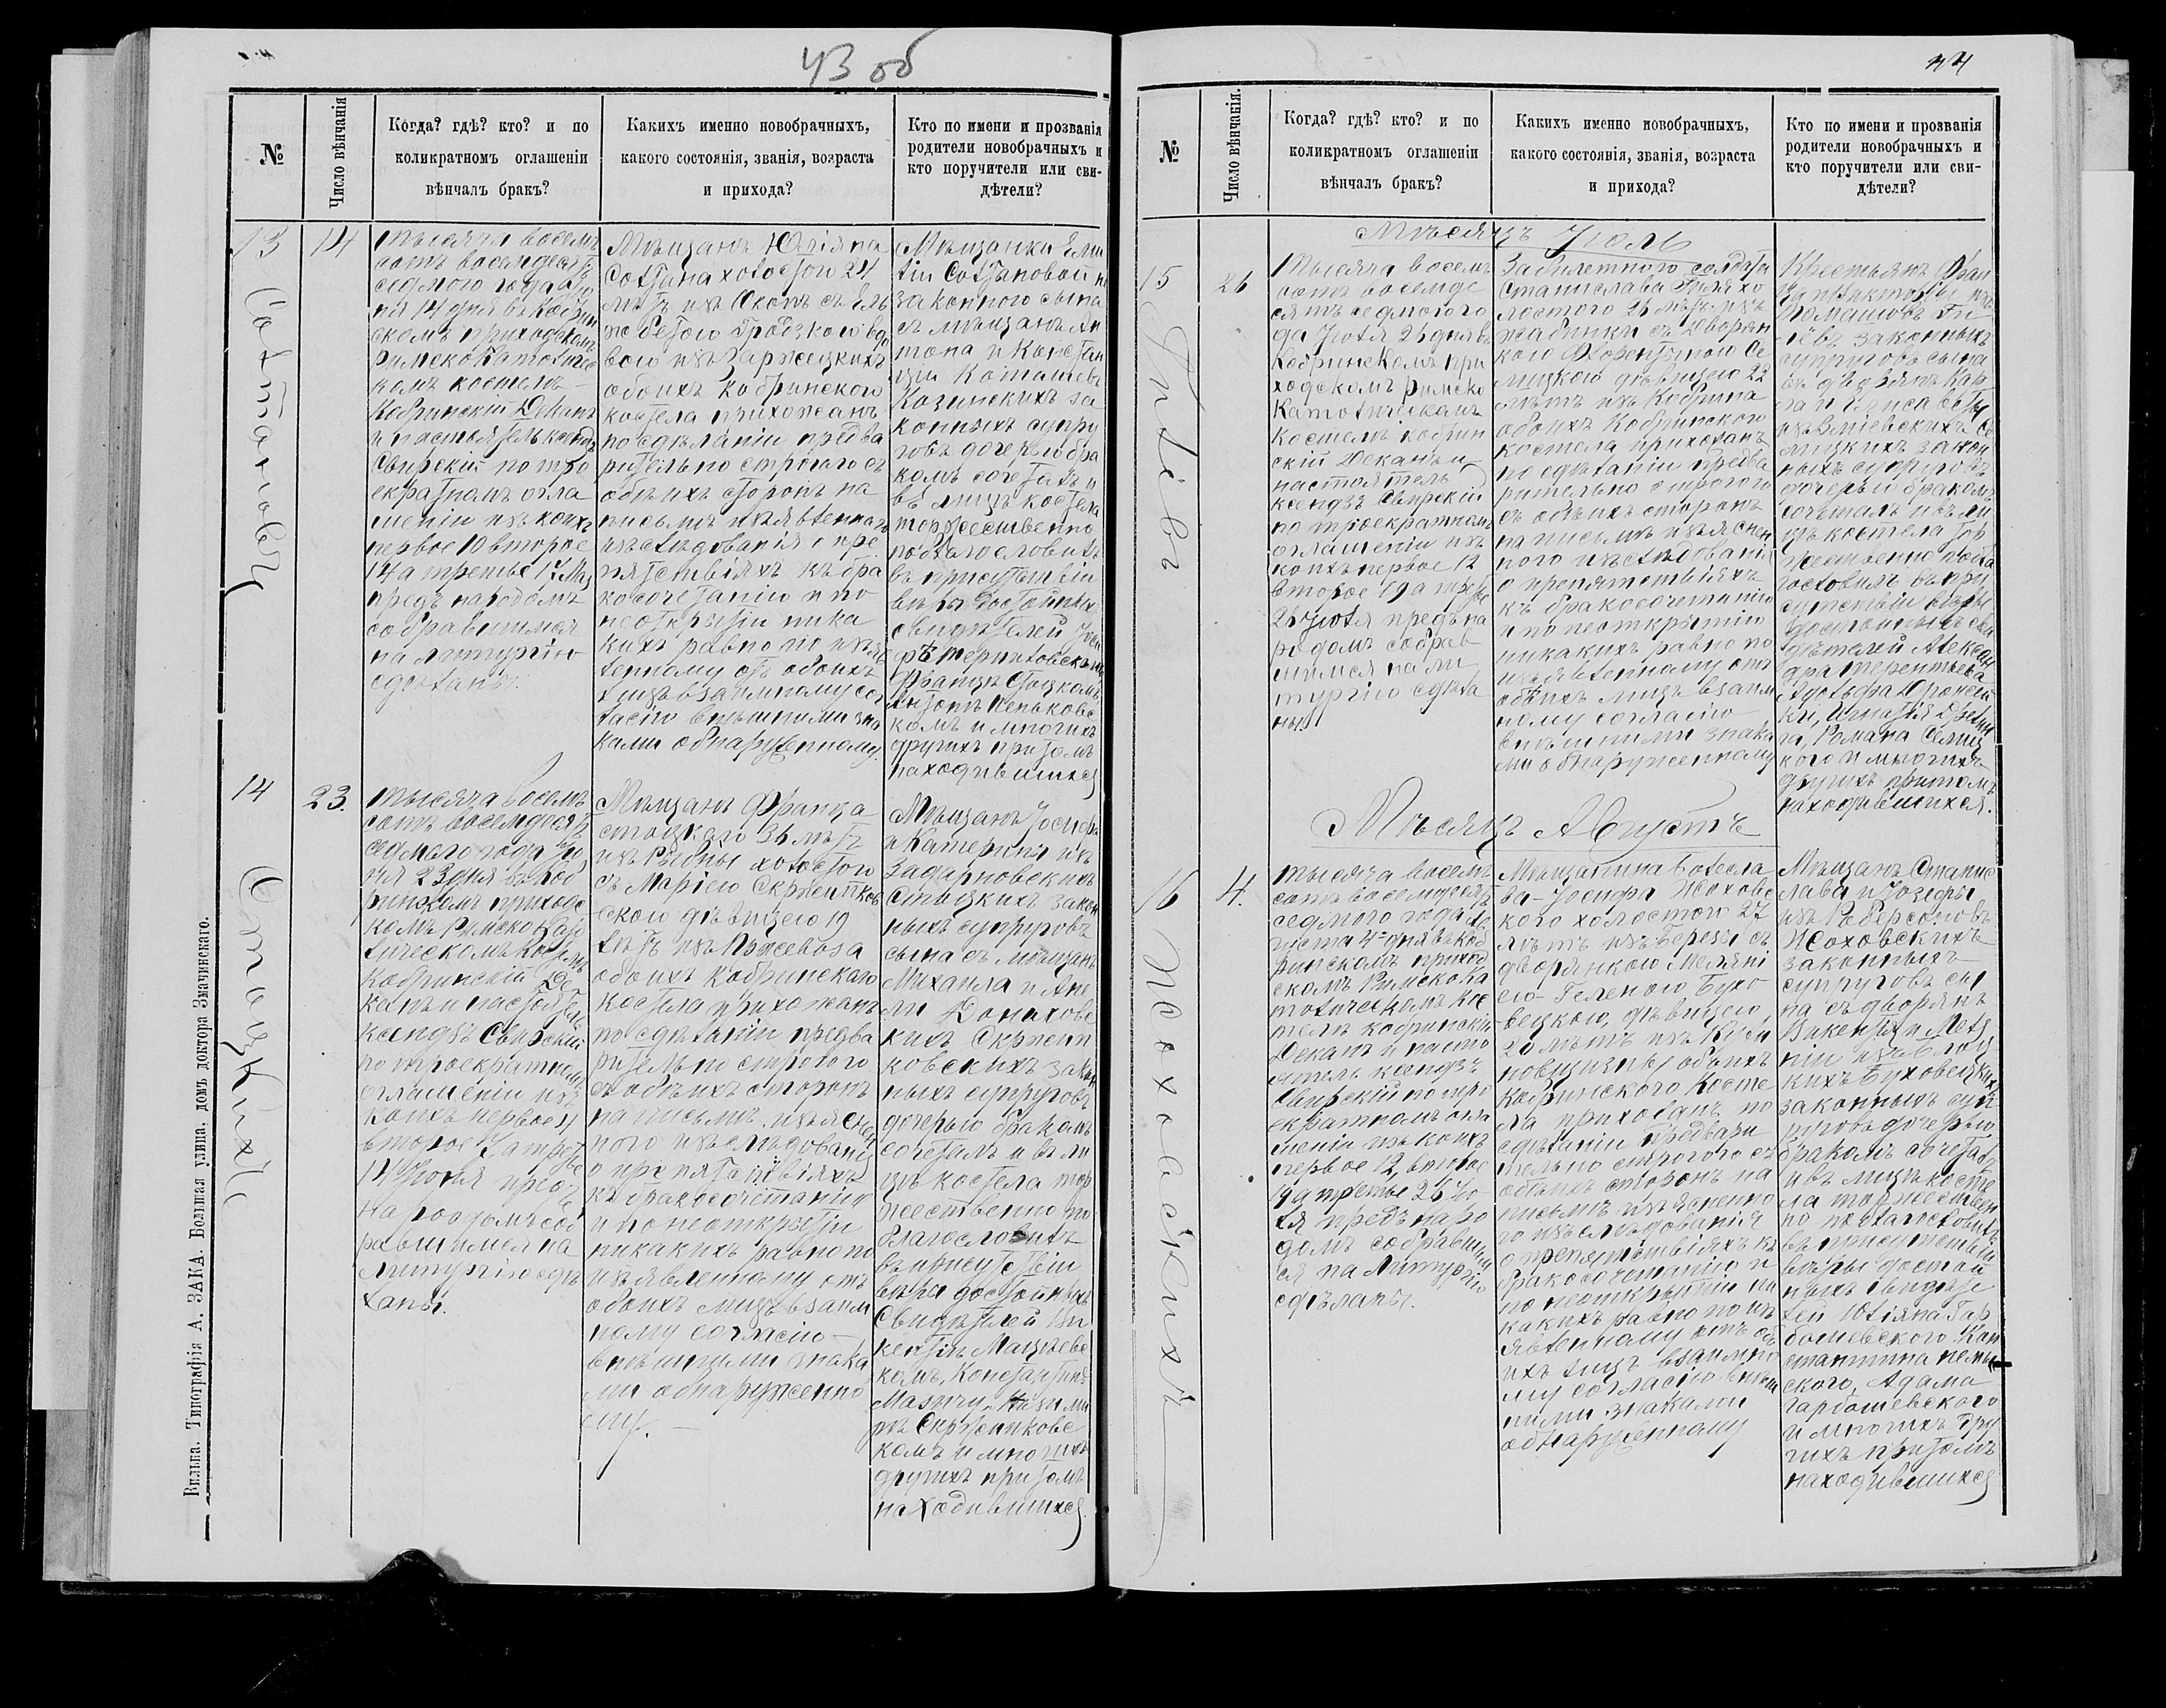 43 об
№
Число вѣнчанія
Когда? гдѣ? кто? и по
коликратномъ оглашеніи
вѣнчалъ бракъ?
Какихъ именно новобрачныхъ,
какого состоянія, званія, возраста
и прихода?
Кто по имени и прозванія
родители новобрачныхъ и
кто поручители или сви-
дѣтели?
13
14
Тысяча восемь
сотъ восемдесятъ
седмого года Iю
ня 14 дня въ Кобрин
скомъ приходскомъ
римско Католичес
комъ костелѣ
Кобринскій Деканъ
и настоятель ксендзъ
Свирскій по трое
екратномъ огла
шеніи изъ коихъ
первое 10 второе
14 а третье 17 Мая
предъ народомъ
собравшимся
на литургію
сдѣланы.
Мѣщанъ Юліяна
Солтана холостого 24
лѣтъ изъ съ Ель
жбетою вдо
вою изъ Заржецкихъ
обоихъ Кобринского
костела прихожанъ
по сдѣланіи предва
рительно строгого съ
обѣихъ сторонъ на
письмѣ изъявленнаго
изслѣдованія о пре
пятствіяхъ къ бра
косочетанію и по
неоткрытіи ника
кихъ равно по изъяв
ленному отъ обоихъ
лицъ взаимному сог
ласію внѣшними зна
ками обнаруженному.
Мѣщанки Еми
ліи Солтановой не
законного сына
съ мѣщанъ Ан
тона и Констан
ціи
Козинскихъ за
конныхъ супру
говъ дочерью бра
комъ сочеталъ и
въ лицѣ костела
торжественно
поблагословилъ
въ присутствіи
вѣры достойныхъ
свидѣтелей Iоси
фѣ
Францѣ Стоцкомъ
Антонѣ Пеньковс
комъ и многихъ
другихъ притомъ
находившихся
14
23.
Тысяча восемь
сотъ восемдесятъ
седмого года Iю
ня 23 дня въ Коб
ринскомъ приходс
комъ Римско Като
лическомъ Костелѣ
Кобринскій Де
канъ и настоятель
ксендзъ Свирскій
по троекратномъ
оглашеніи изъ
коихъ первое
второе 7 а третье
14 Iюня предъ
народомъ соб
равшимся на
литургію сдѣ
ланы.
Мѣщанъ Франца
Стоцкаго 36 лѣтъ
изъ Рыбны холостого
съ Маріею Скржентков
скою дѣвицею 19
лѣтъ изъ
обоихъ Кобринскаго
костела прихожанъ
по сдѣланіи предва
рительно строгого
съ обѣихъ сторонъ
на письмѣ изъяснен
ного изслѣдованія
о препятствіяхъ
къ бракосочетанію
и по неоткрытіи
никакихъ равно по
изъявленному отъ
обоихъ лицъ взаим
ному согласію
внѣшними знака
ми обнаруженно
му.
Мѣщанъ Iосифа
и Катерины изъ
Задарновскихъ
Стоцкихъ закон
ныхъ супруговъ
сына съ мѣщанъ
Михаила и Ане
ли
кихъ Скржент
ковскихъ закон
ныхъ супруговъ
дочерью бракомъ
сочеталъ и въ ли
цѣ костела тор
жественно по
благословилъ
въ присутствіи
вѣры достойныхъ
Свидѣтелей Ви
кентіѣ Мацѣевс
комъ, Константинѣ
Мазичу, Казими
рѣ Скржентковс
комъ и многихъ
другихъ притомъ
находившихся.
Солтановъ
Стоцкихъ
Вильна. Типографія А. ЗАКА. Большая улица, домъ доктора Значинскаго.
44
№
Число вѣнчанія.
Когда? гдѣ? кто? и по
коликратномъ оглашеніи
вѣнчалъ бракъ?
Какихъ именно новобрачныхъ,
какого состоянія, званія, возраста
и прихода?
Кто по имени и прозванія
родители новобрачныхъ и
кто поручители или сви-
дѣтели?
Мѣсяцъ Iюль
15
26
Тысяча восемь
сотъ восемде
сятъ седмого го
да Iюля 26 дня въ
Кобринскомъ при
ходскомъ римско
Католическомъ
костелѣ Кобрин
скій Деканъ и
настоятель
ксендзъ Свирскій
по троекратномъ
оглашеніи изъ
коихъ первое 12
второе 19 а третье
26 Iюля предъ на
родомъ собрав
шимся на ли
тургію сдѣла
ны
Забилетного солдата
Станислава Гиля хо
лостого 26 лѣтъ изъ
Жабинки съ дворян
кою Флорентиною Се
лицкою дѣвицею 22
лѣтъ изъ Кобрина
обоихъ Кобринского
костела прихожанъ
по сдѣланіи предва
рительно строгого
съ обѣихъ сторонъ
на письмѣ изъяснен
ного изслѣдованія
о препятствіяхъ
къ бракосочетанію
и по неоткрытію
никакихъ равно по
изъявленному отъ
обѣихъ лицъ взаим
ному согласію
внѣшними знака
ми обнаруженному
Крестьянъ Фран
ца и Викторіи изъ
Гил
ёвъ законныхъ
супруговъ сына
съ дворянъ Кар
ла и Елисаветы
изъ Змѣевскихъ Се
лицкихъ закон
ныхъ супруговъ
дочерью бракомъ
сочеталъ и въ ли
цѣ костела тор
жественно побла
гословилъ въ при
сутствіи вѣры
достойныхъ сви
дѣтелей Алексан
дра Терентьева
Адольфа
ки, Игнатія
Романа Селиц
кого и многихъ
другихъ притомъ
находившихся.
Мѣсяцъ Августъ
16
4.
Тысяча восемь
сотъ восемдесятъ
седмого года Ав
густа 4 дня въ Коб
ринскомъ приход
скомъ Римско Ка
толическомъ Кос
телѣ Кобринскій
Деканъ и насто
ятель ксендзъ
Свирскій по тро
екратномъ огла
шеніи изъ коихъ
первое 12, второе
19 а третье 26 Iю
ля предъ наро
домъ собравшим
ся на Литургію
сдѣланы.
Мѣщанина Болесла
ва-Iосифа Жоховс
кого холостого 27
лѣтъ изъ Березы съ
дворянкою Меляні
ею Геленою Бухо
вецкою, дѣвицею,
20 лѣтъ изъ
обоихъ
Кобринского Косте
ла прихожанъ по
сдѣланіи предвари
тельно строгого съ
обѣихъ сторонъ на
письмѣ изъясненно
го изслѣдованія
о препятствіяхъ къ
бракосочетанію и
по неоткрытіи ни
какихъ равно по изъ
явленному отъ обо
ихъ лицъ взаимно
му согласію внѣш
ними знаками
обнаруженному
Мѣщанъ Станис
лава и Юзефы
изъ
Жоховскихъ
законныхъ
супруговъ сы
на съ дворянъ
Викентія и Меля
ніи изъ
кихъ Буховецкихъ
законныхъ суп
руговъ дочерью
бракомъ сочеталъ
и въ лицѣ косте
ла торжествен
но поблагословилъ
въ присутствіи
вѣры достой
ныхъ свидѣте
лей Юліяна Гар
башевского Кон
стантина
ского, Адама
Гарбашевского
и многихъ дру
гихъ притомъ
находившихся
Гилёвъ
Жоховскихъ